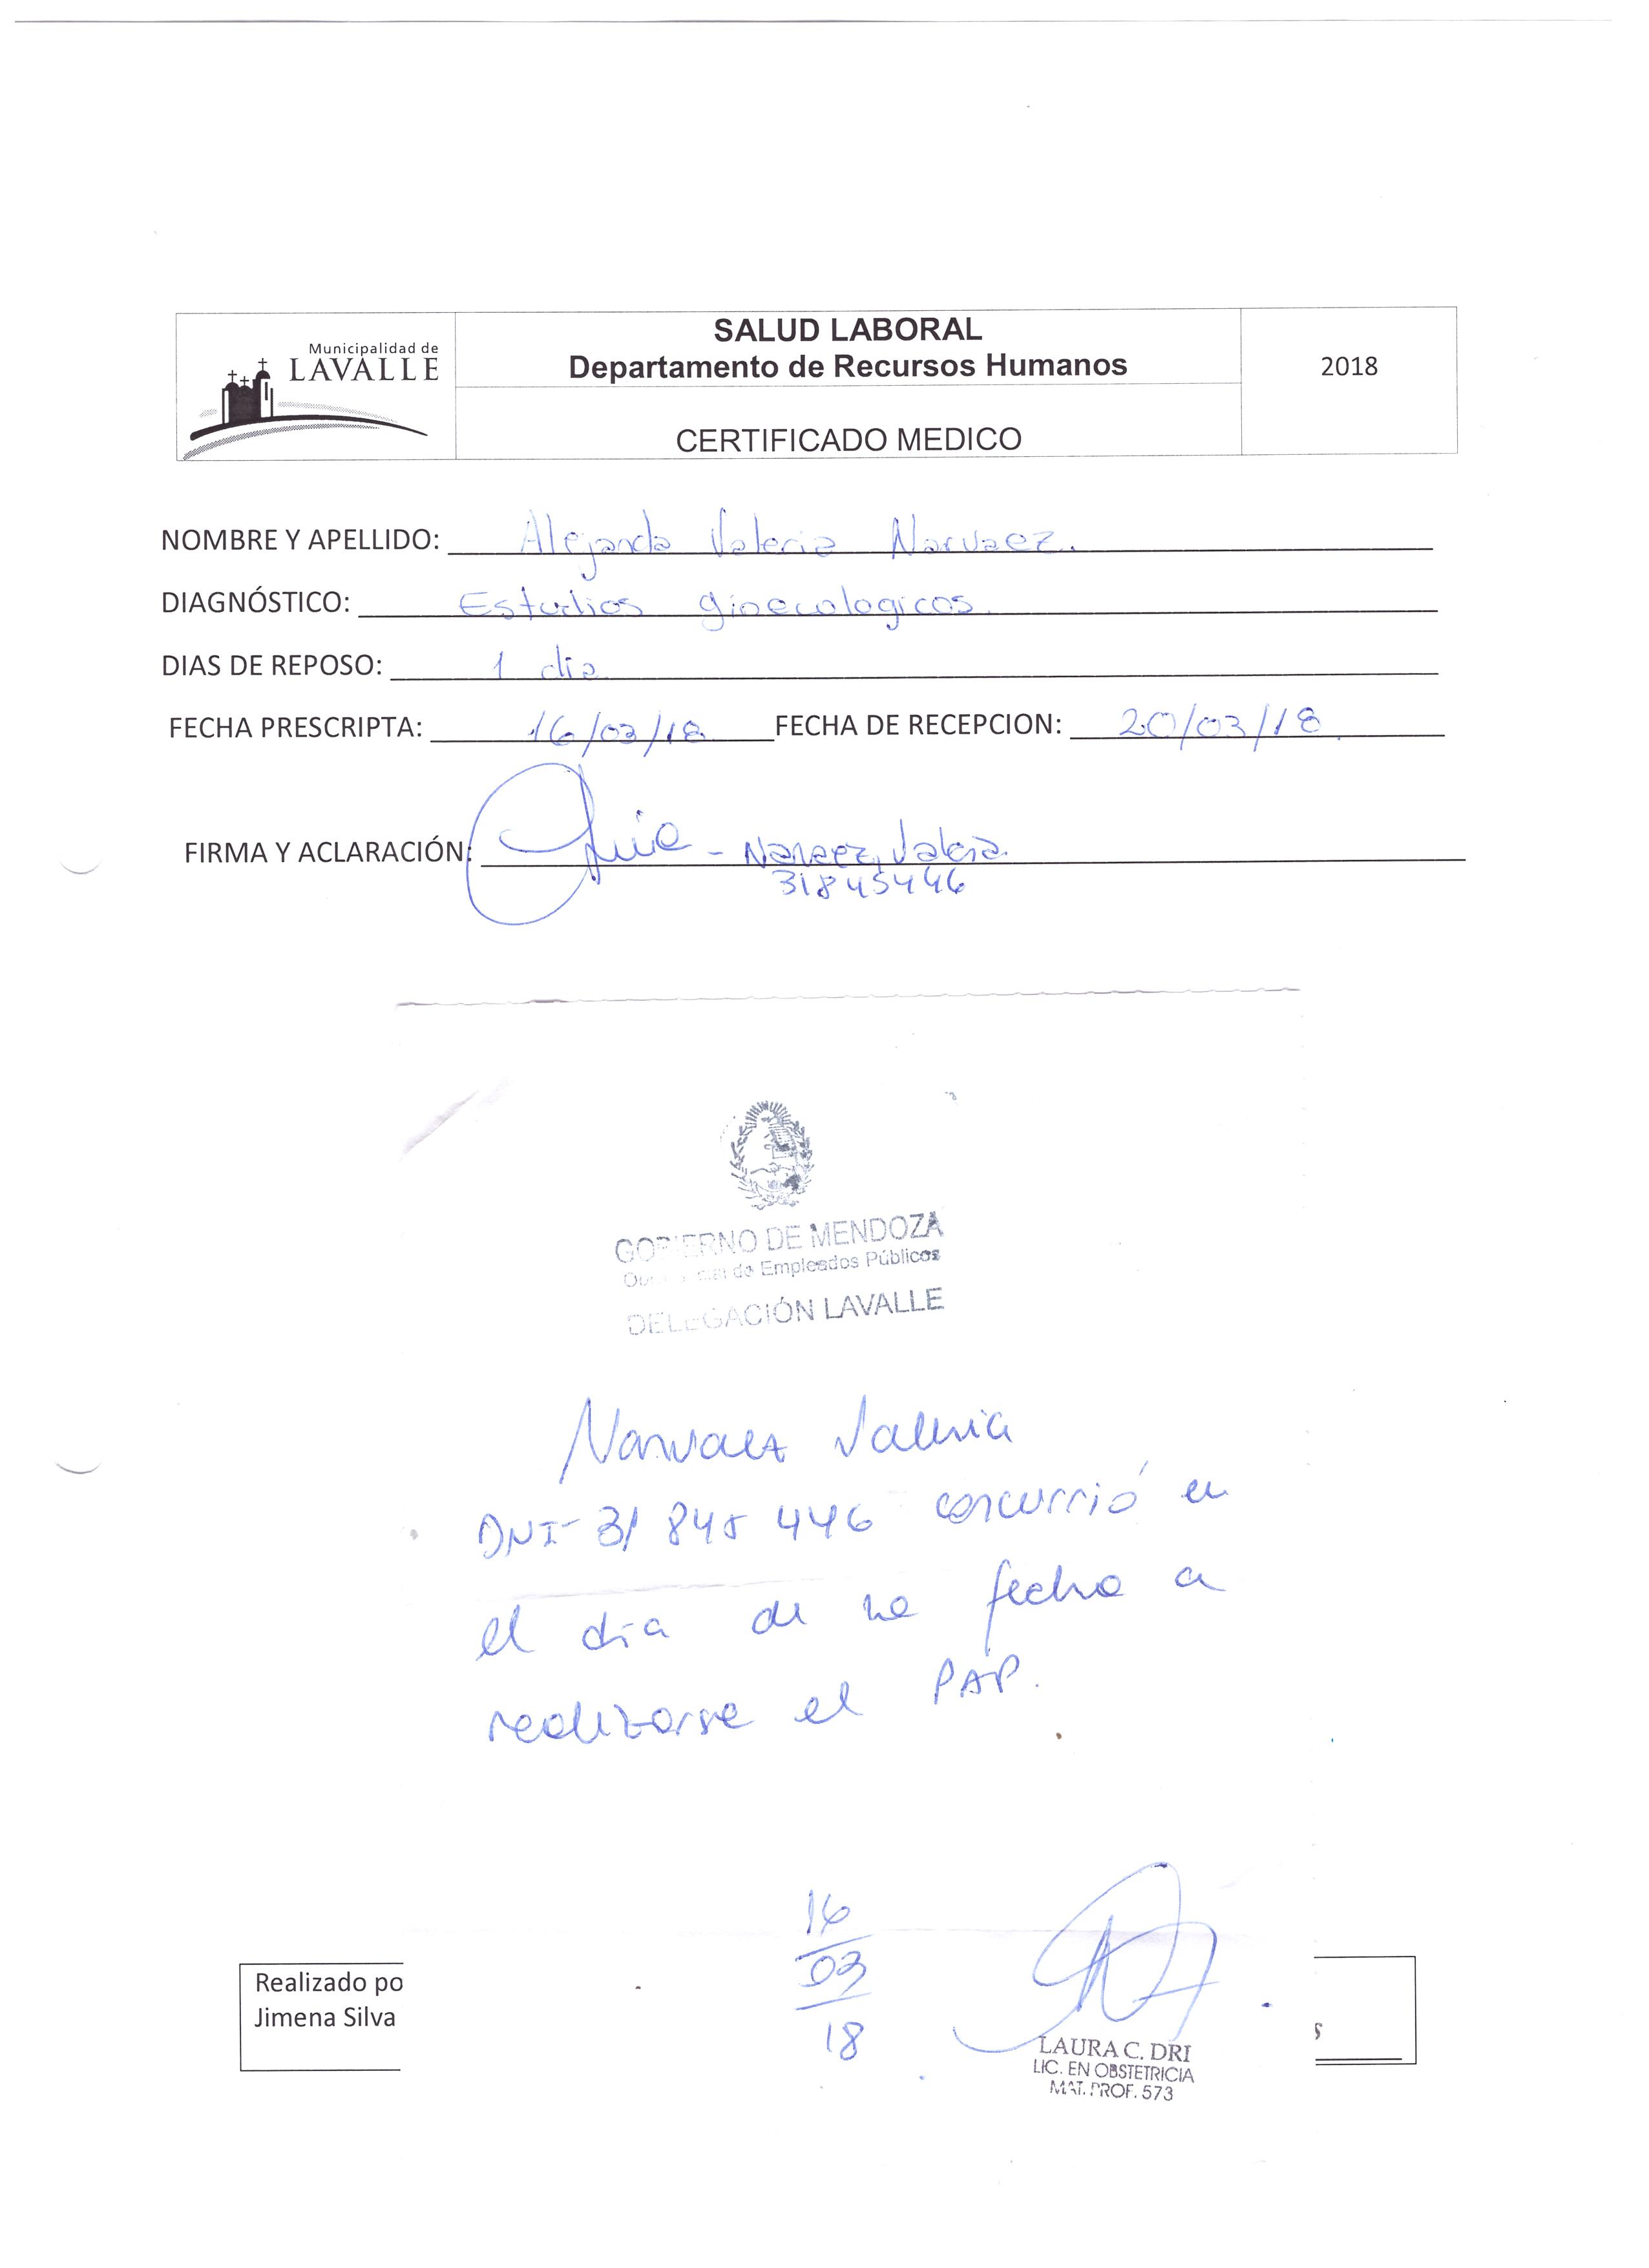 Municipalidad de
LAVALLE
SALUD LABORAL
Departamento de Recursos Humanos
CERTIFICADO MEDICO
2018
NOMBRE Y APELLIDO: Alejanda Valeria Narvaez.
DIAGNÓSTICO: Estudios ginecologicos.
DIAS DE REPOSO: 1 dia
FECHA PRESCRIPTA: 16/03/18 FECHA DE RECEPCION: 20/03/18.
FIRMA Y ACLARACIÓN: - Narvaez, Valeria.
31845446
GOBIERNO DE MENDOZA
de Empleados Públicos
DELEGACIÓN LAVALLE
Narvaez Valeria
DNI- 31 845 446 concurrió en
el dia de la fecha a
realizarse el PAP.
16
03
18
Realizado po
Jimena Silva
s
LAURA C. DRI
LIC. EN OBSTETRICIA
MAT. PROF. 573